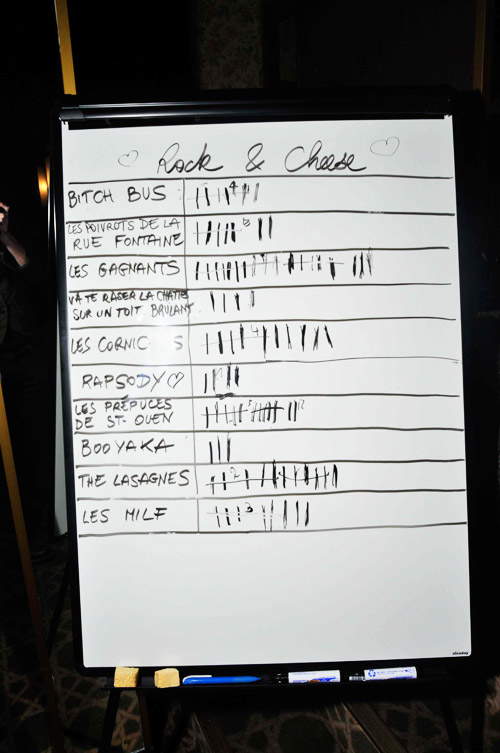 Rock & Cheese
BITCH BUS
LES POIVROTS DE LA
RUE FONTAINE
LES GAGNANTS
VA TE RASER LA CHATTE
SUR UN TOIT BRULANT
LES CORNIC S
RAPSODY
LES PRÉPUCES
DE ST-OUEN
BOOYAKA
THE LASAGNES
LES MILF